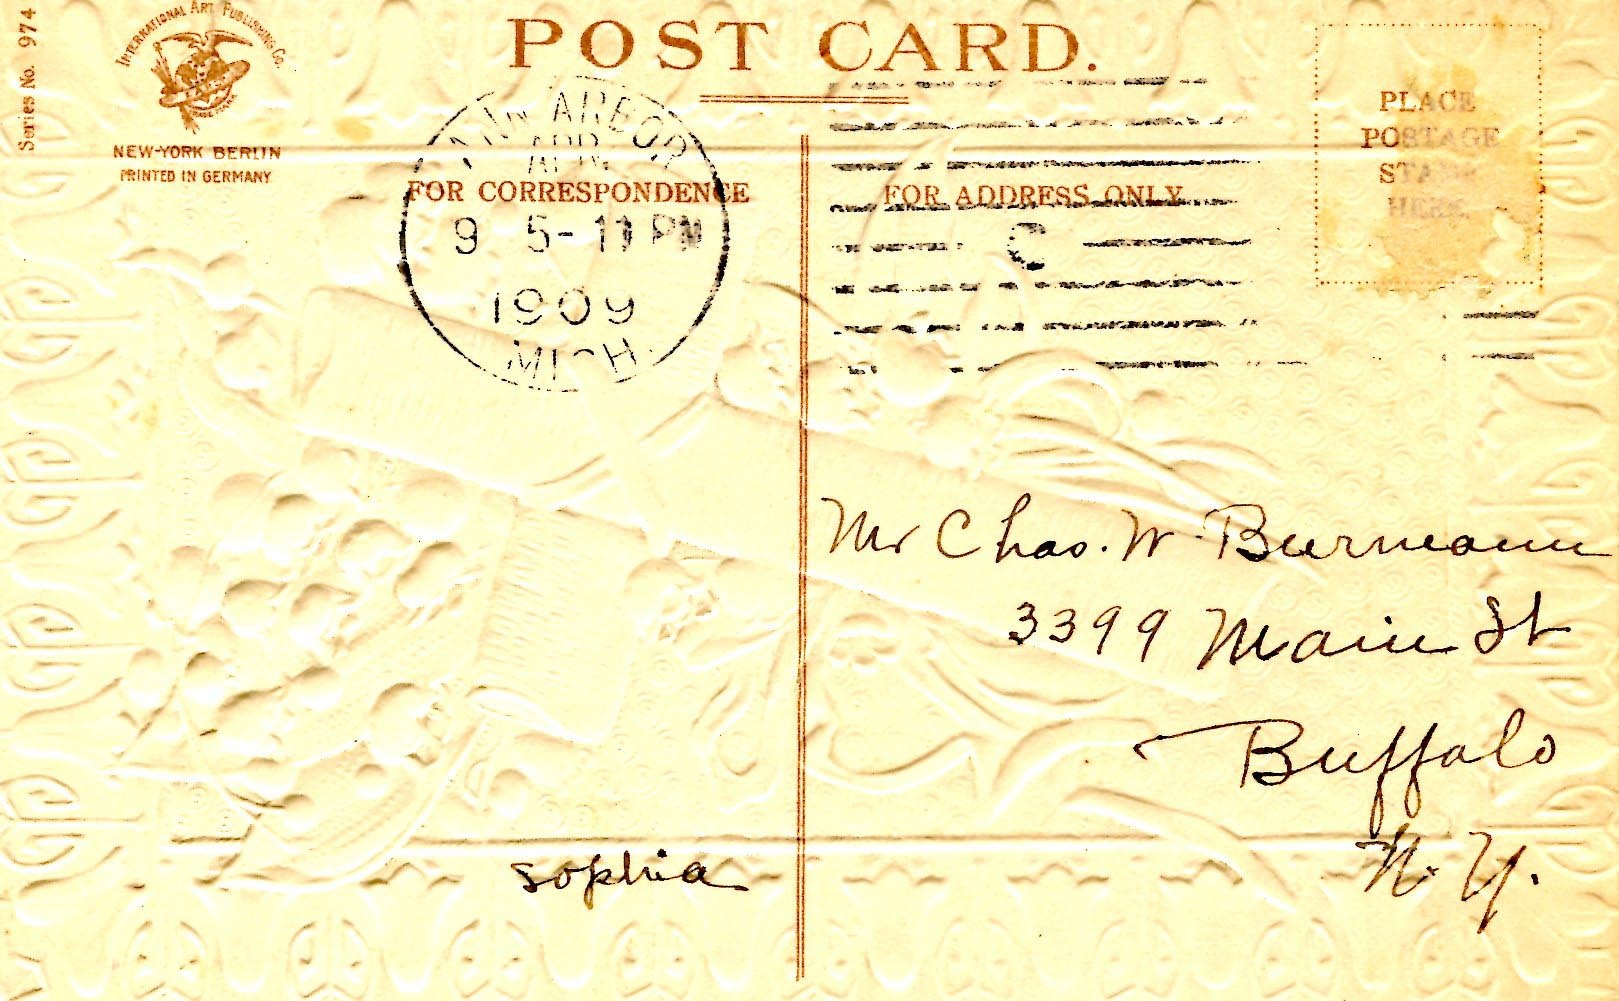 Series No. 974
INTERNATIONAL ART PUBLISHING CO.
NEW-YORK BERLIN
PRINTED IN GERMANY
POST CARD.
ANN ARBOR
APR
9 5-11 PM
1909
MICH.
FOR CORRESPONDENCE
FOR ADDRESS ONLY
C
PLACE
POSTAGE
STAMP
HERE
Mr Chas. W. Burmann
3399 Main St
Buffalo
N. Y.
Sophia